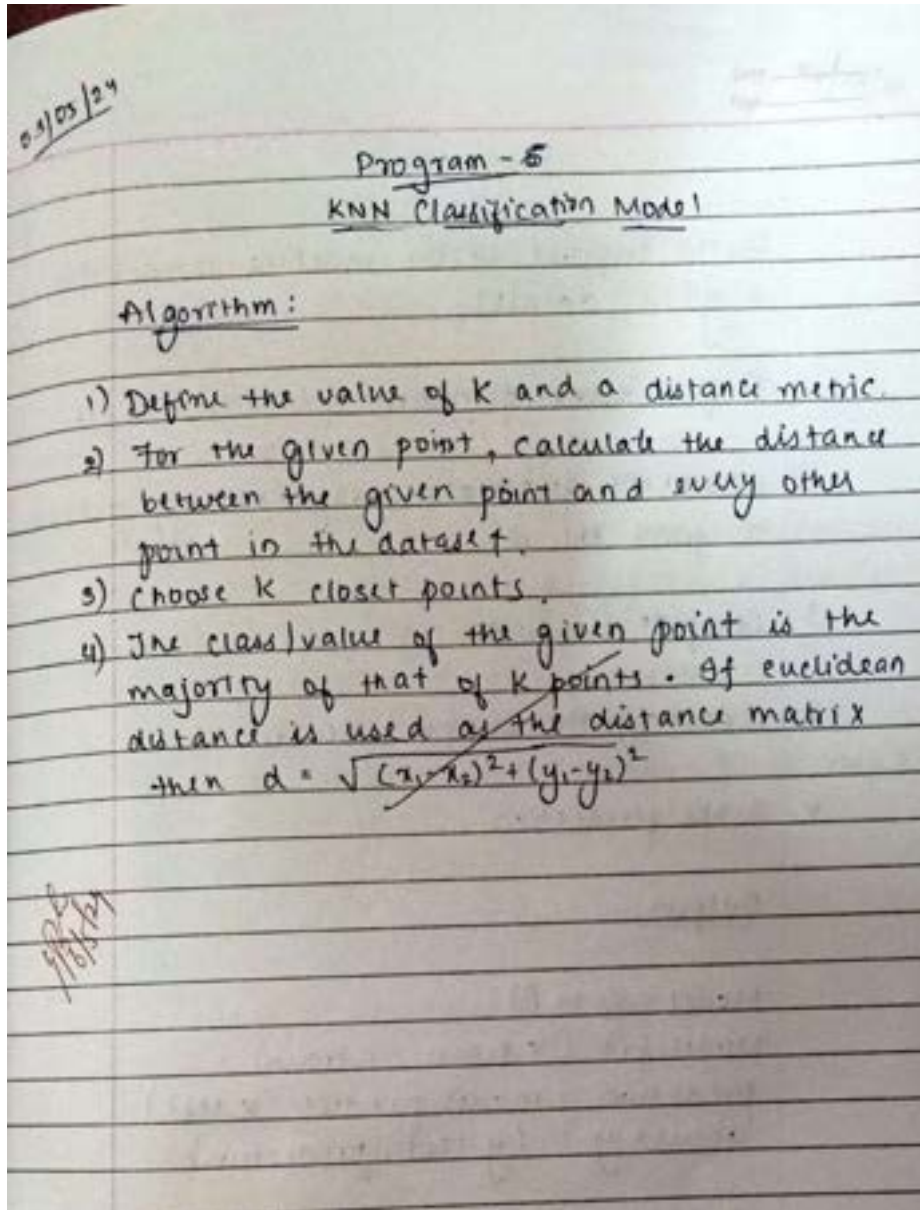 Program - 5
KNN Classification Model
Algorithm:
1) Define the value of K and a distance metric.
2) For the given point, calculate the distance
between the given point and every other
point in the dataset.
3) Choose K closet points.
4) The class/value of the given point is the
majority of that of K points. If euclidean
distance is used as the distance matrix
then d = √(x₁-x₂)²+(y₁-y₂)²